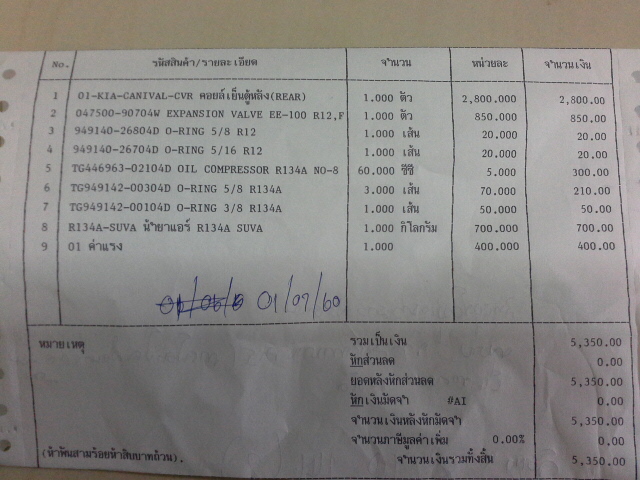 No. รหัสสินค้า/รายละเอียด จำนวน หน่วยละ จำนวนเงิน
1 01-KIA-CANIVAL-CVR คอยล์เย็นตู้หลัง(REAR) 1.000 ตัว 2,800.000 2,800.00
2 047500-90704W EXPANSION VALVE EE-100 R12,F 1.000 ตัว 850.000 850.00
3 949140-26804D O-RING 5/8 R12 1.000 เส้น 20.000 20.00
4 949140-26704D O-RING 5/16 R12 1.000 เส้น 20.000 20.00
5 TG446963-02104D OIL COMPRESSOR R134A NO-8 60.000 ซีซี 5.000 300.00
6 TG949142-00304D O-RING 5/8 R134A 3.000 เส้น 70.000 210.00
7 TG949142-00104D O-RING 3/8 R134A 1.000 เส้น 50.000 50.00
8 R134A-SUVA น้ำยาแอร์ R134A SUVA 1.000 กิโลกรัม 700.000 700.00
9 01 ค่าแรง 1.000 400.000 400.00
01/07/60
หมายเหตุ รวมเป็นเงิน 5,350.00
หักส่วนลด 0.00
ยอดหลังหักส่วนลด 5,350.00
หักเงินมัดจำ #AI 0.00
จำนวนเงินหลังหักมัดจำ 5,350.00
จำนวนภาษีมูลค่าเพิ่ม 0.00% 0.00
(ห้าพันสามร้อยห้าสิบบาทถ้วน). จำนวนเงินรวมทั้งสิ้น 5,350.00